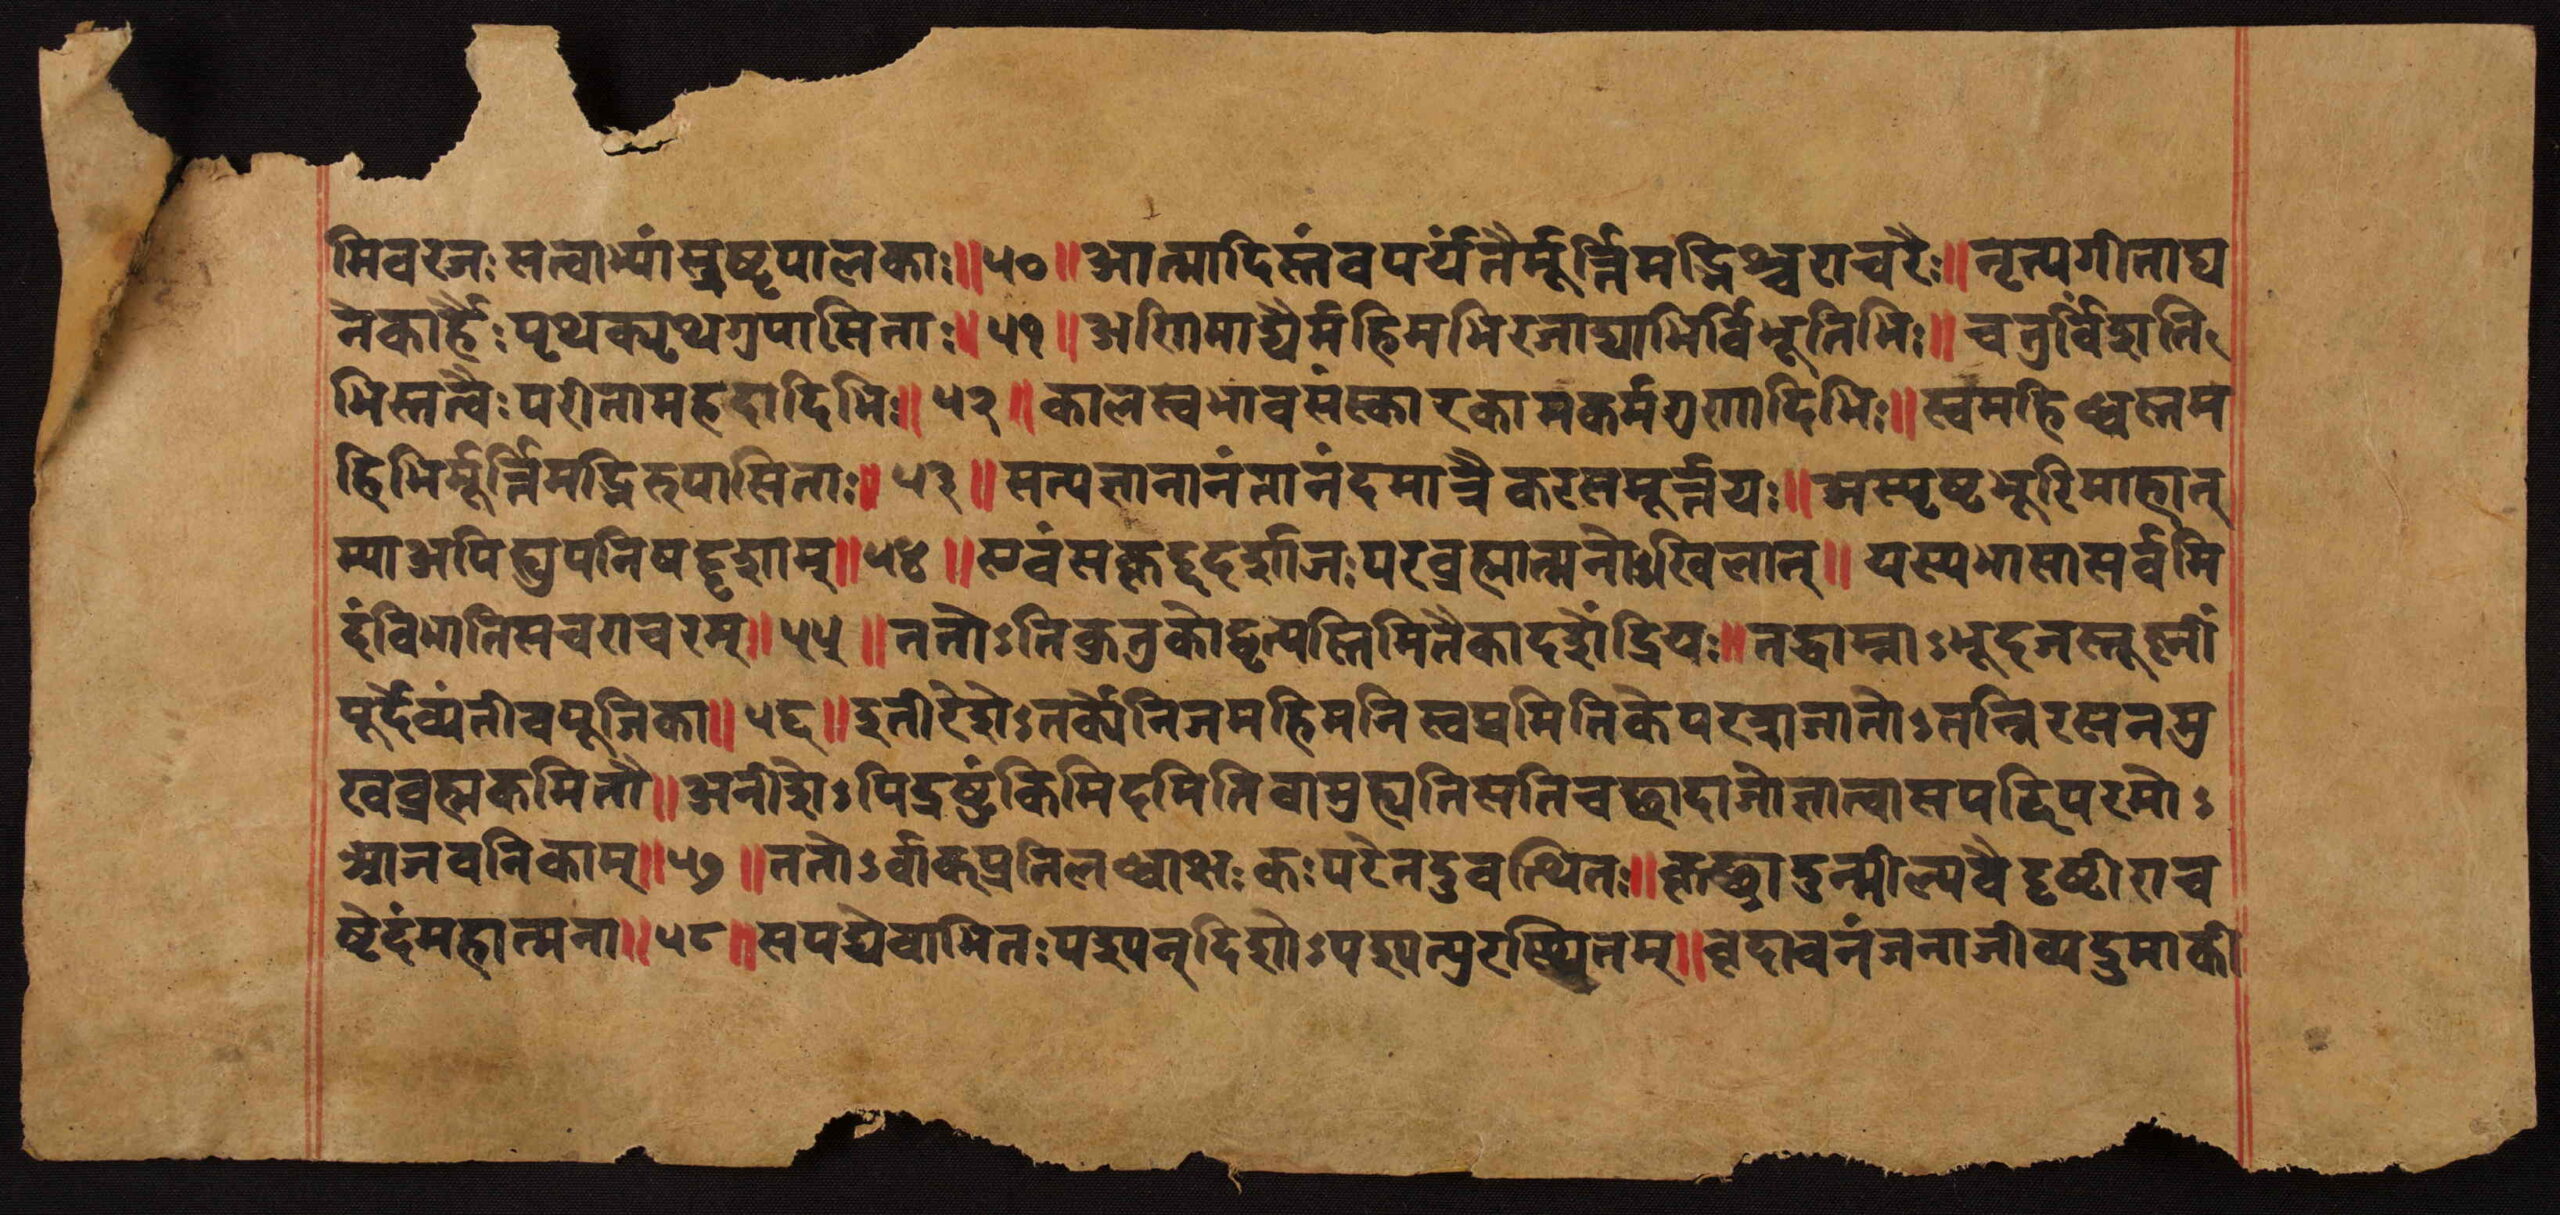 मिवरजःसत्वाभ्यांस्रष्टृपालकाः॥५०॥आत्मादिस्तंवपर्यंतैर्मूर्त्तिमद्भिश्चराचरैः॥नृत्यगीताद्य
नेकार्हैःपृथक्पृथगुपासिताः॥५१॥अणिमाद्यैर्महिमभिरजाद्याभिर्विभूतिभिः॥चतुर्विंशति
भिस्तत्वैःपरीतामहदादिभिः॥५२॥कालस्वभावसंस्कारकामकर्मगुणादिभिः॥स्वमहिध्वस्तम
हिभिर्मूर्त्तिमद्भिरुपासिताः॥५३॥सत्यज्ञानानंतानंदमात्रैकरसमूर्त्तयः॥अस्पृष्टभूरिमाहात्
म्याअपिह्युपनिषद्दृशाम्॥५४॥एवंसकृद्ददर्शाजःपरब्रह्मात्मनोऽखिलान्॥यस्यभासासर्वमि
दंविभातिसचराचरम्॥५५॥ततोऽतिकुतुकोद्वृत्यस्तिमितैकादशेंद्रियः॥तद्धाम्नाऽभूदजस्तूष्णीं
पूर्देव्यंतीवपूजिका॥५६॥इतीरेशेऽतर्क्येनिजमहिमनिस्वप्रमितिकेपरत्राजातोऽतन्निरसनमु
खब्रह्मकमितौ॥अनीशेऽपिद्रष्टुंकिमिदमितिवामुह्यतिसतिचछादाजोज्ञात्वासपदिपरमोऽ
जाजवनिकाम्॥५७॥ततोऽर्वाक्प्रतिलब्धाक्षःकःपरेतदुवत्थितः॥कृछ्रादुन्मील्यवैदृष्टीराच
ष्टेदंमहात्मना॥५८॥सपद्येवाभितःपश्यन्दिशोऽपश्यत्पुरःस्थितम्॥वृदावनंजनाजीव्यद्रुमाकी